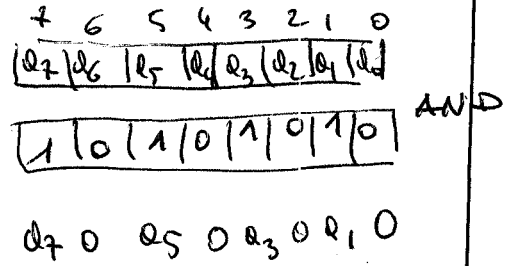 7 6 5 4 3 2 1 0
a7 a6 a5 a4 a3 a2 a1 a0
AND
1 0 1 0 1 0 1 0
a7 0 a5 0 a3 0 a1 0